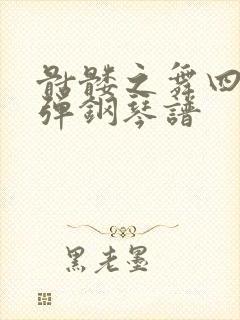 骷髅之舞四
弹鋼琴譜
黑老墨